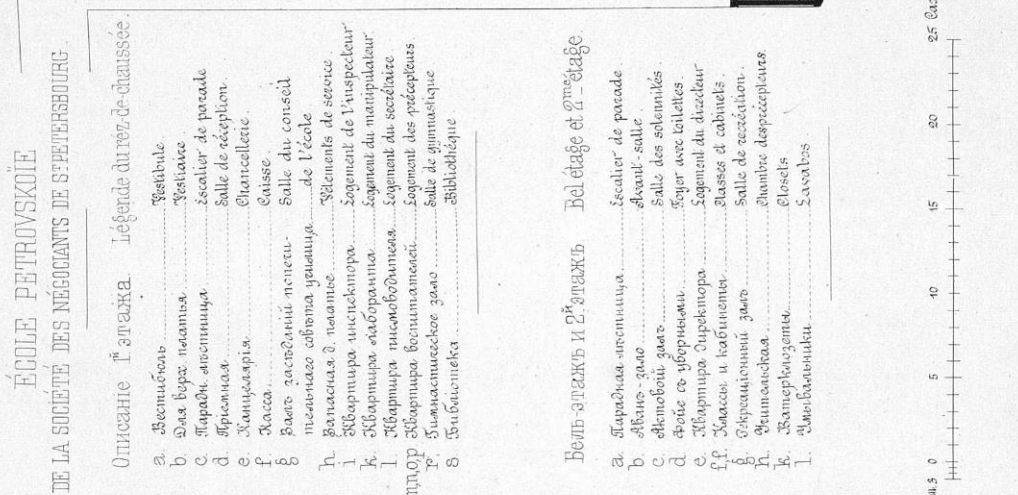 ÉCOLE PETROVSKOÏE
DE LA SOCIÉTÉ DES NÉGOCIANTS DE ST PETERSBOURG.
Описаніе 1й этажа. Légende du réz-de-chaussée.
a. Вестибюль Vestibule.
b. Для верх. платья Vestiaire.
c. Парадн. лѣстница Escalier de parade
d. Пріемная Salle de réception.
e. Канцелярія Chancellerie.
f. Касса Caisse.
g Залъ засѣданій попечи- Salle du conseil
тельнаго совѣта училища de l'école
h. Запасная д. платье Vêtements de service.
i Квартира инспектора Logement de l'inspecteur
k. Квартира лаборанта Logement du manipulateur.
l. Квартира писмоводителя Logement du secrétaire.
m,n,o,p Квартира воспитателей Logement des précepteurs.
r. Гимнастическое зало Salle de gymnastique
s. Библіотека Bibliothéque.
Бель-этажъ и 2й этажъ Bel étage et 2me étage
a. Парадная лѣстница Escalier de parade.
b. Аванъ-зало Avant-salle
c. Актовый залъ Salle des solennités.
d Фойе съ уборными Foyer avec toilettes
e. Квартира Директора Logement du directeur
f,f. Классы и кабинеты Classes et cabinets.
g. Рекреаціонный залъ Salle de recréation.
h. Учительская Chambre des précepteurs.
k. Ватерклозеты Closets
l. Умывальники Lavabos
0 5 10 15 20 25 Саж.